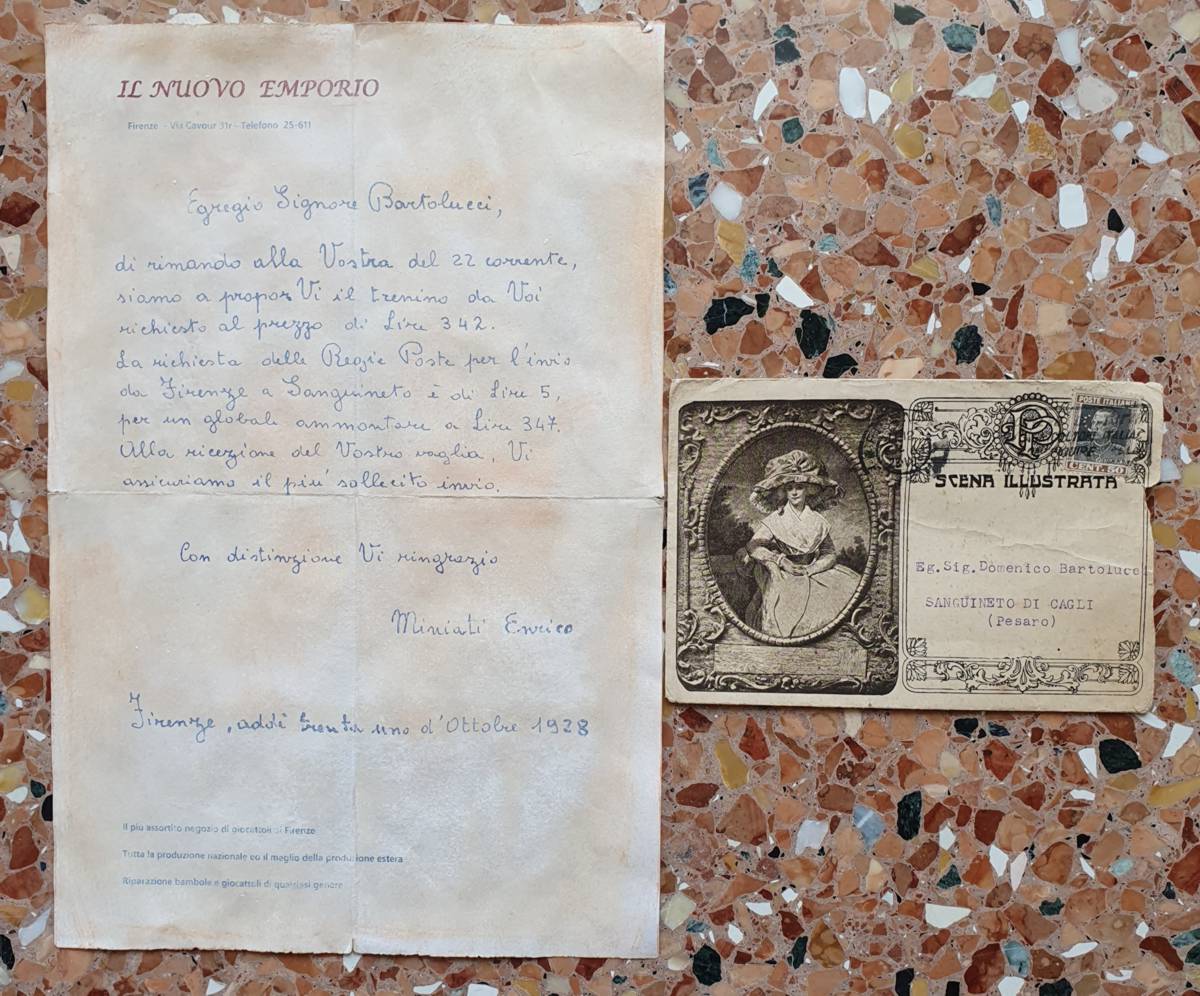 IL NUOVO EMPORIO
Firenze - Via Cavour 31r - Telefono 25-611
Egregio Signore Bartolucci,
di rimando alla Vostra del 22 corrente,
siamo a propor Vi il trenino da Voi
richiesto al prezzo di Lire 342.
La richiesta delle Regie Poste per l'invio
da Firenze a Sanguineto è di Lire 5,
per un globale ammontare a Lire 347.
Alla ricezione del Vostro vaglia, Vi
assicuriamo il piu' sollecito invio.
Con distinzione Vi ringrazio
Miniati Enrico
Firenze, addì trenta uno d'Ottobre 1928
Il più assortito negozio di giocattoli di Firenze
Tutta la produzione nazionale ed il meglio della produzione estera
Riparazione bambole e giocattoli di qualsiasi genere
POSTE ITALIANE
CENT. 50
SCENA ILLUSTRATA
Eg.Sig.Domenico Bartolucc
SANGUINETO DI CAGLI
(Pesaro)